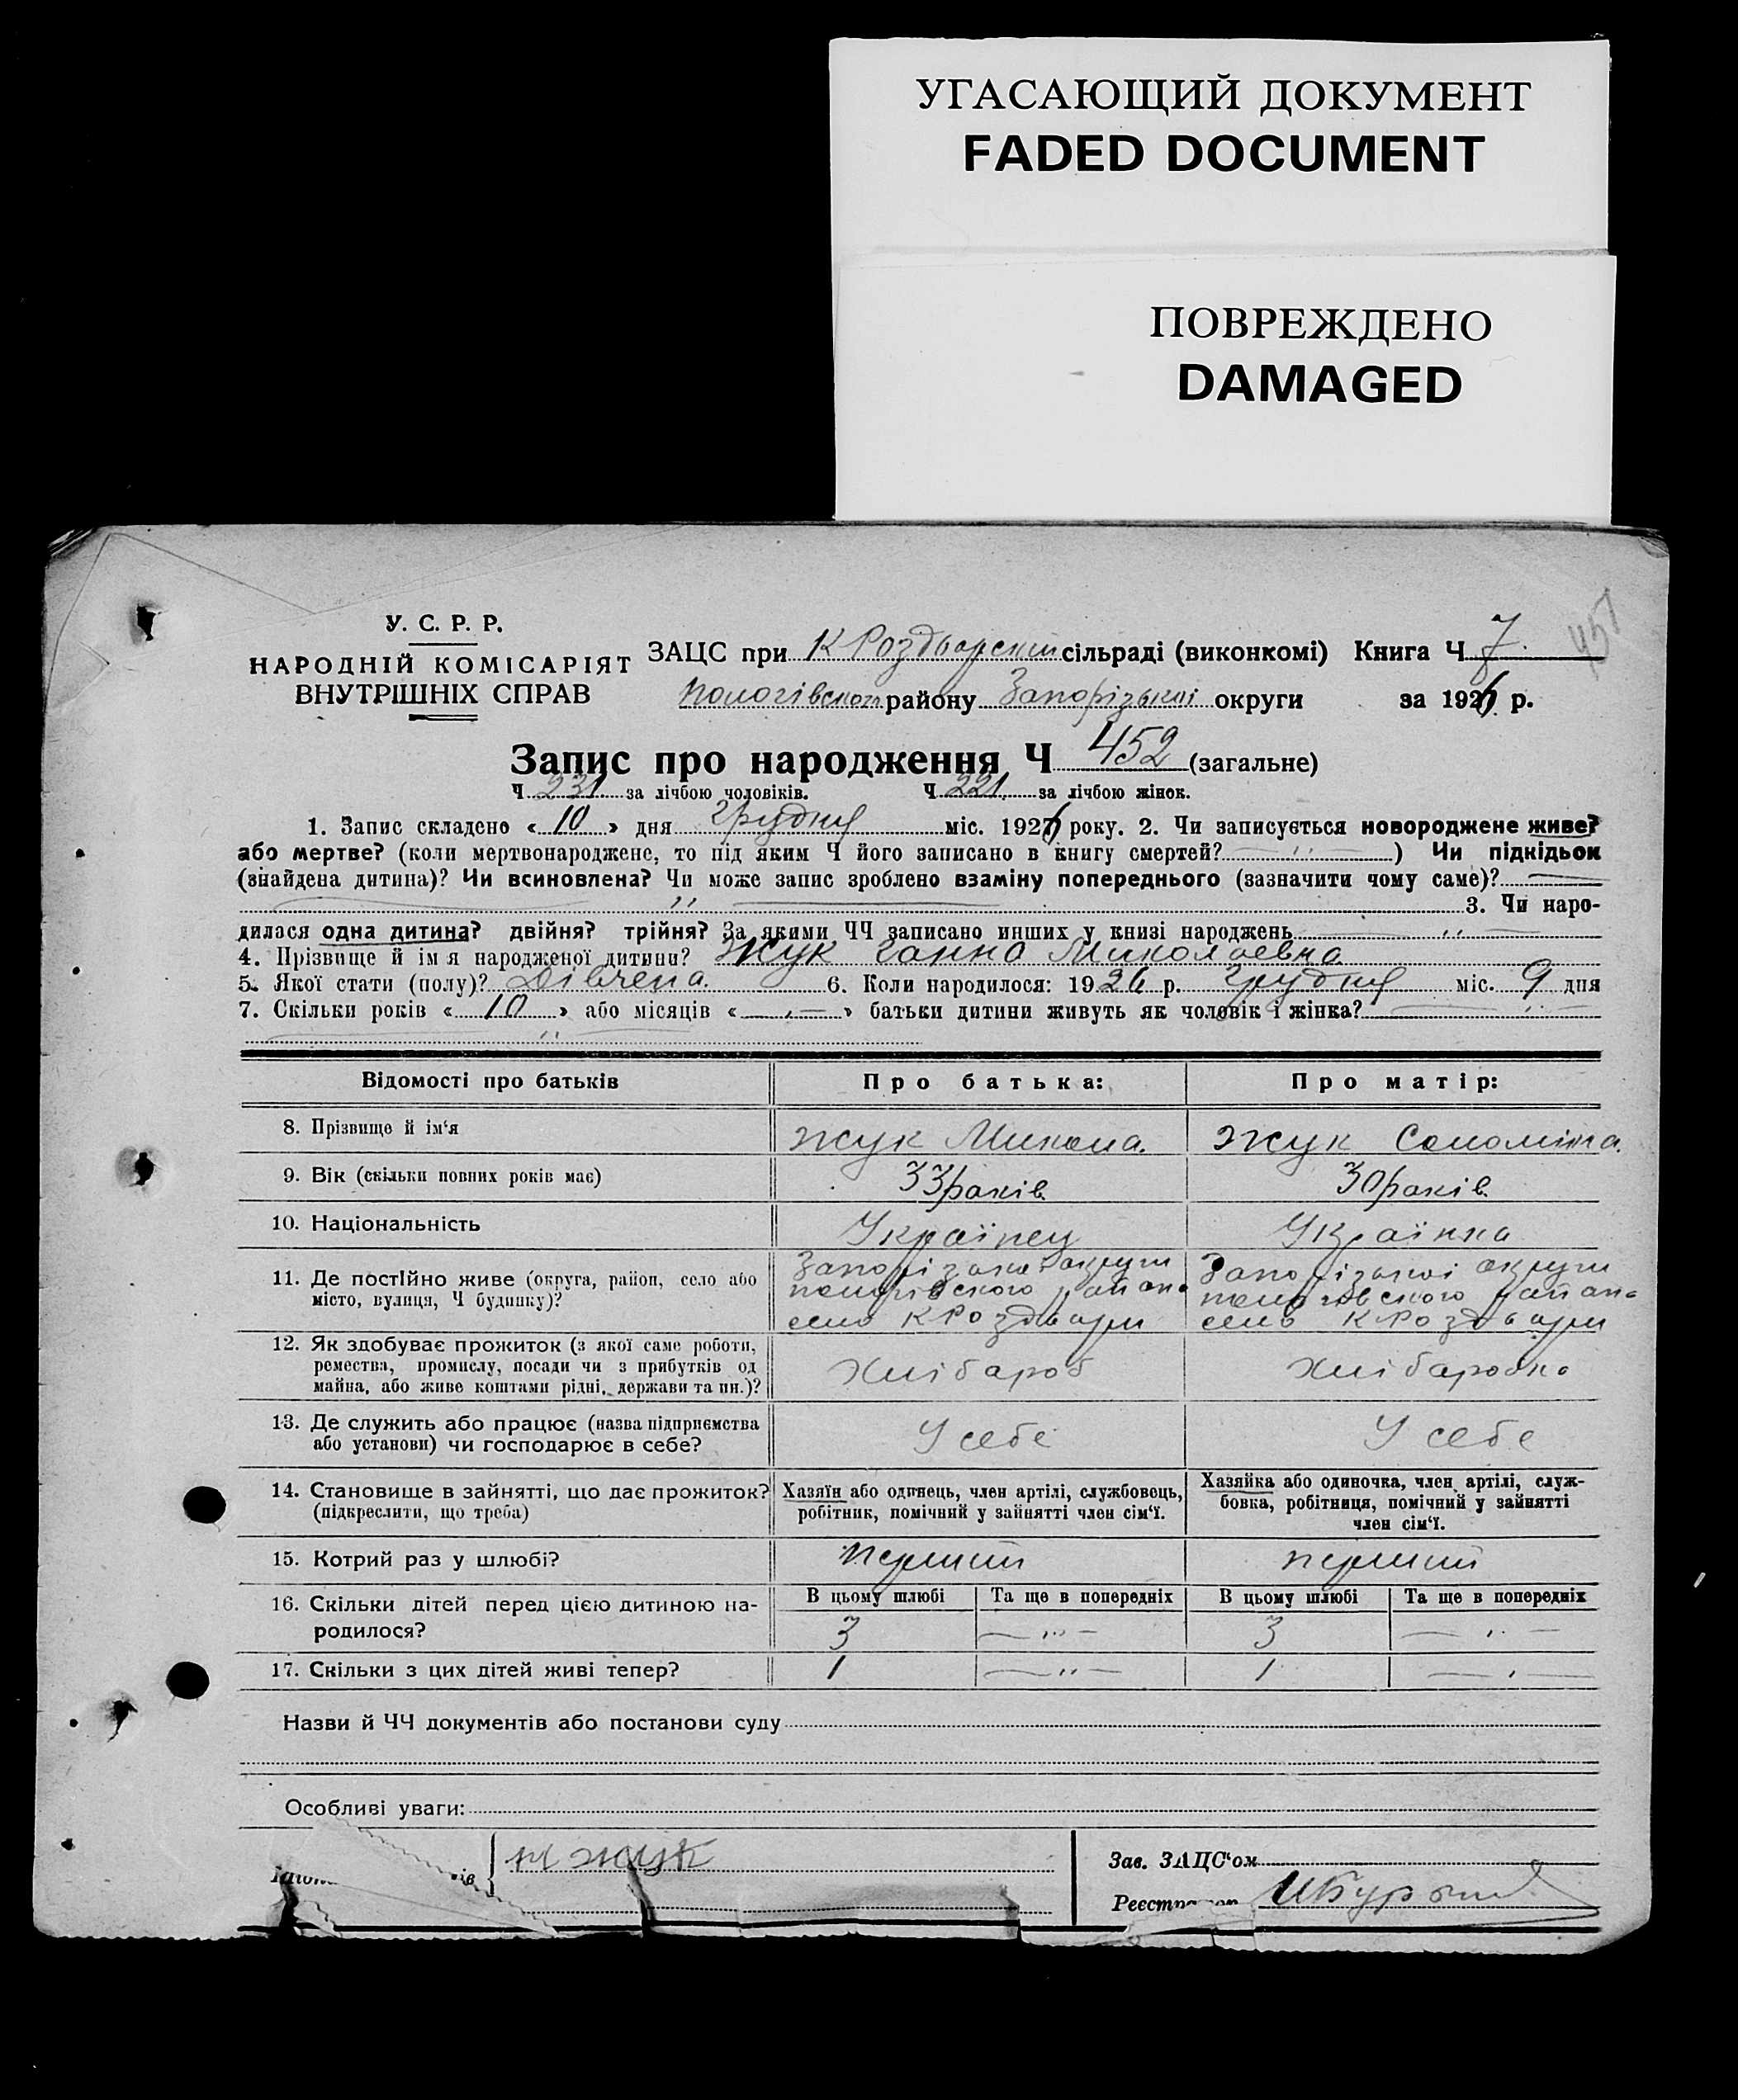 УГАСАЮЩИЙ ДОКУМЕНТ
FADED DOCUMENT
ПОВРЕЖДЕНО
DAMAGED
У. С. Р. Р.
НАРОДНІЙ КОМІСАРІЯТ
ВНУТРІШНІХ СПРАВ
ЗАЦС при К Роздорский сільраді (виконкомі) Книга Ч 7
Пологівского району Запорізькоі округи за 1926 р.
Запис про народження Ч 452 (загальне)
Ч 231 за лічбою чоловіків. Ч 221. за лічбою жінок.
1. Запис складено « 10 » дня грудня міс. 1926 року. 2. Чи записується новороджене живе?
або мертве? (коли мертвонароджене, то під яким Ч його записано в книгу смертей? — " — ) Чи підкідьок
(знайдена дитина)? Чи всиновлена? Чи може запис зроблено взаміну попереднього (зазначити чому саме)? —
— " — 3. Чи наро-
дилася одна дитина? двійня? трійня? За якими ЧЧ записано инших у книзі народжень — " —
4. Прізвище й імя народженої дитини? Жук Ганна Миколаевна
5. Якої стати (полу)? Дівчена. 6. Коли народилося: 1926 р. грудня міс. 9 дня
7. Скільки років « 10 » або місяців « — » батьки дитини живуть як чоловік і жінка? — " —
— " —
Відомості про батьків Про батька: Про матір:
8. Прізвище й ім‘я Жук Микола. Жук Соломіна.
9. Вік (скільки повних років має) 33 років. 30 років.
10. Національність Українец Українка
11. Де постІйно живе (округа, район, село або
місто, вулиця, Ч будинку)?
Запорізькоі округи
пологівского район.
село К Роздори
Запорізькоі округи
пологовского район.
село К Роздори
12. Як здобуває прожиток (з якої саме роботи,
ремества, промислу, посади чи з прибутків од
майна, або живе коштами рідні, держави та ин.)?
Хлібароб Хлібаробка
13. Де служить або працює (назва підприємства
або установи) чи господарює в себе?
У себе У себе
14. Становище в зайнятті, що дає прожиток?
(підкреслити, що треба)
Хазяїн або одинець, член артілі, службовець,
робітник, помічний у зайнятті член сім‘ї.
Хазяйка або одиночка, член артілі, служ-
бовка, робітниця, помічний у зайнятті
член сім‘ї.
15. Котрий раз у шлюбі? перший перший
16. Скільки дітей перед цією дитиною на-
родилося?
В цьому шлюбі Та ще в попередніх В цьому шлюбі Та ще в попередніх
3 — " — 3 — " —
17. Скільки з цих дітей живі тепер? 1 — " — 1 — " —
Назви й ЧЧ документів або постанови суду
Особливі уваги:
М Жук
Зав. ЗАЦС‘ом
Реєстратор